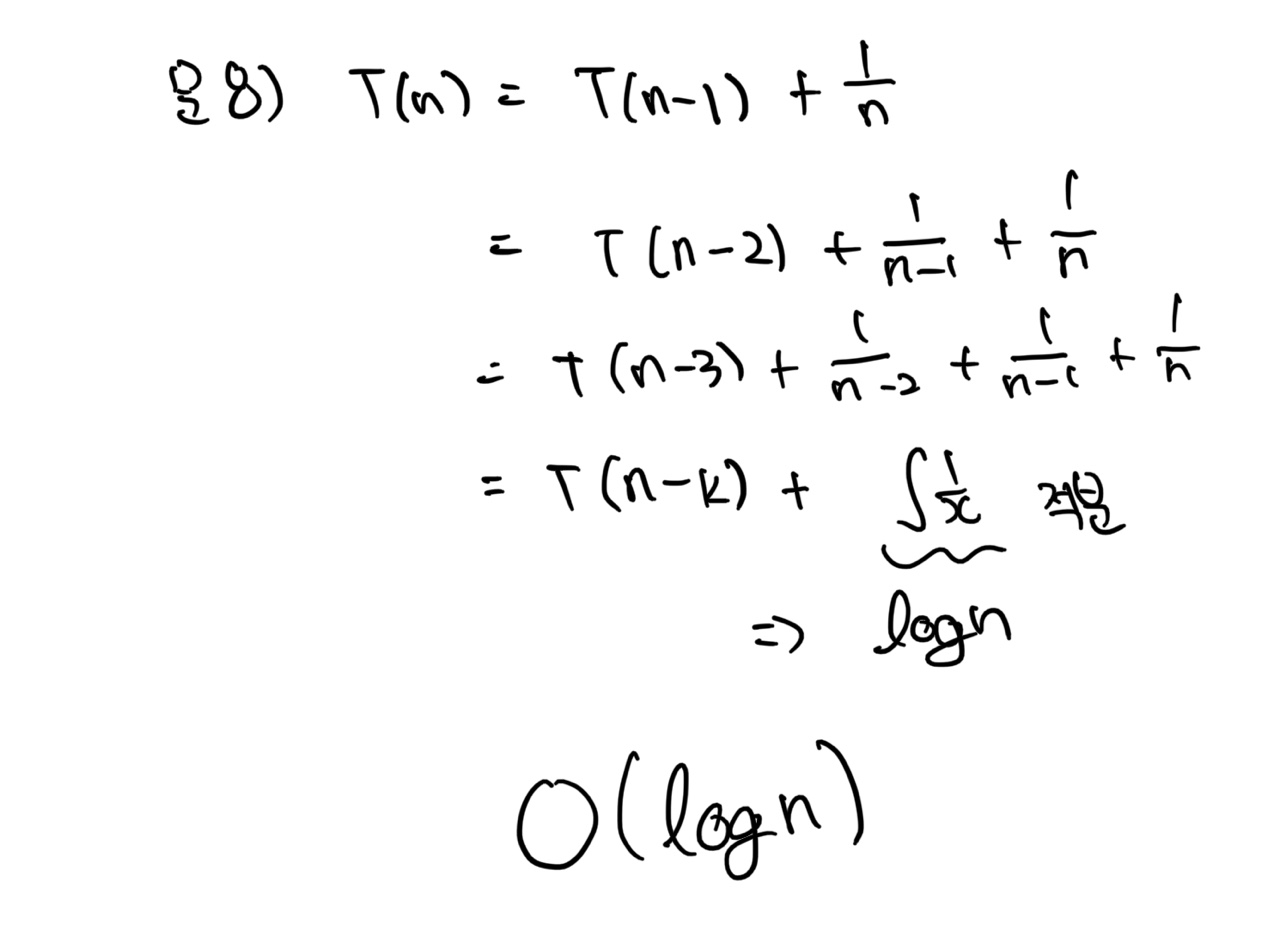 문8) T(n) = T(n-1) + 1/n
= T(n-2) + 1/(n-1) + 1/n
= T(n-3) + 1/(n-2) + 1/(n-1) + 1/n
= T(n-k) + ∫1/x 적분
=> logn
O(logn)